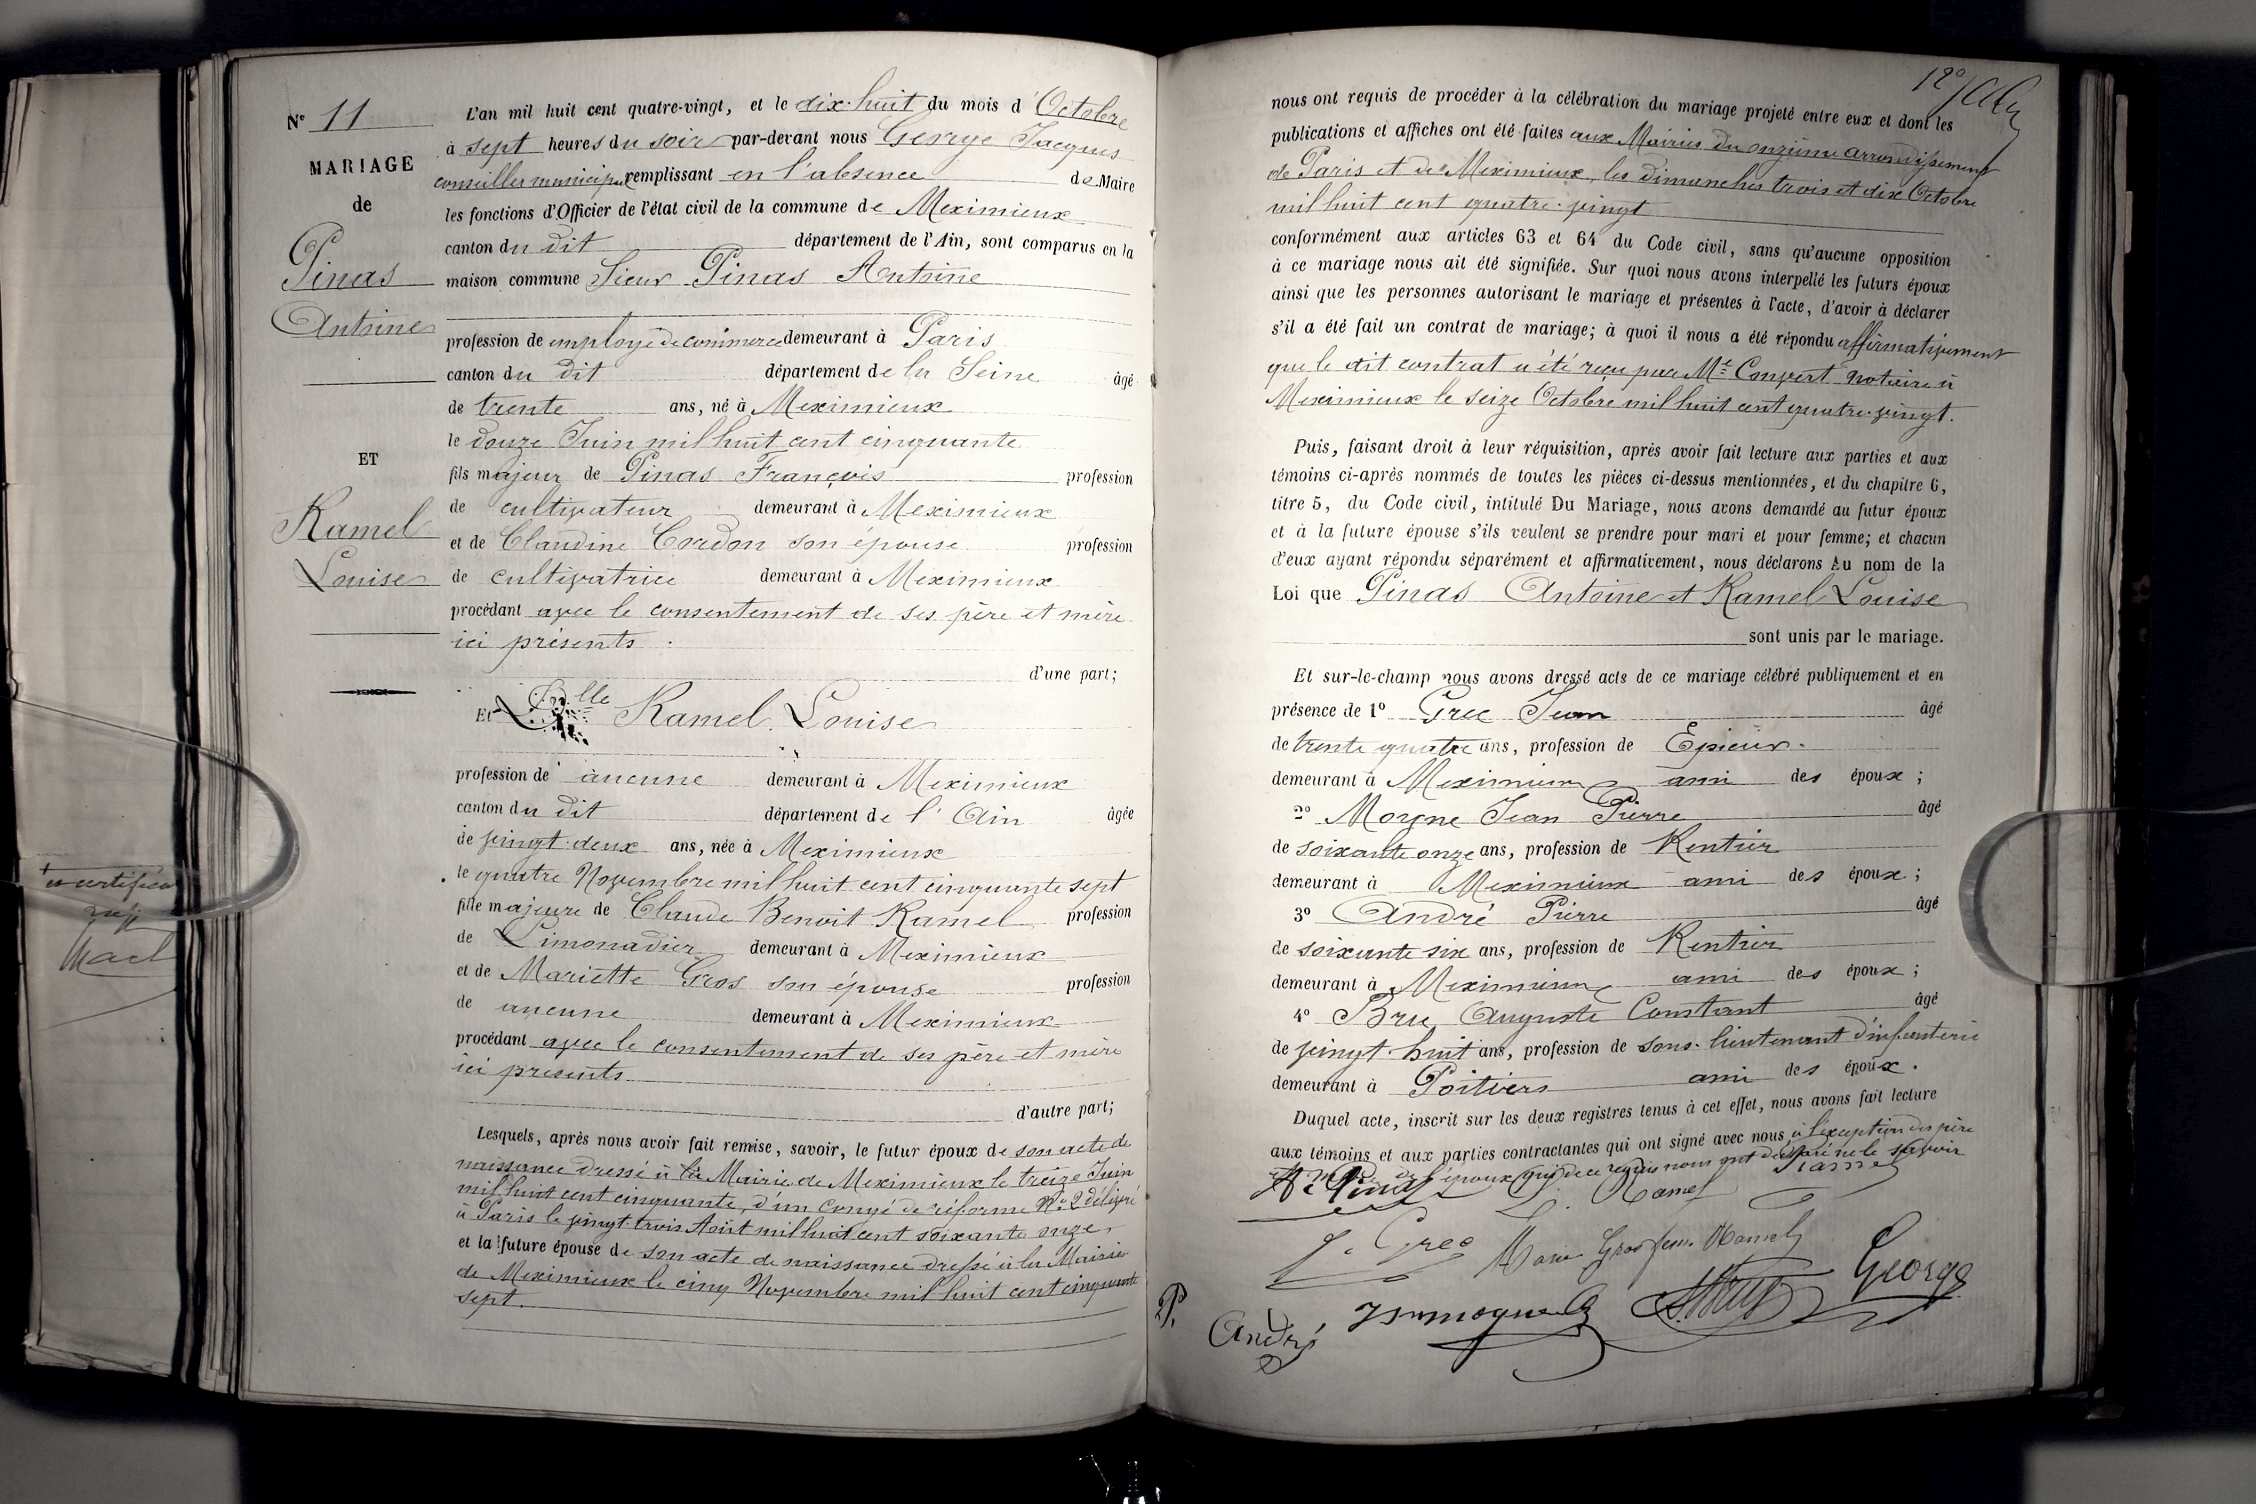 Nº 11
MARIAGE
de
Pinas
Antoine
ET
Ramel
Louise
L'an mil huit cent quatre-vingt, et le dix-huit du mois d'Octobre
à sept heures du soir par-devant nous George Jacques
conseiller municipal remplissant en l'absence de Maire
les fonctions d'Officier de l'état civil de la commune de Meximieux
canton du dit département de l'Ain, sont comparus en la
maison commune Sieur Pinas Antoine
profession de employé de commerce demeurant à Paris
canton du dit département de la Seine âgé
de trente ans, né à Meximieux
le douze Juin mil huit cent cinquante
fils majeur de Pinas François profession
de cultivateur demeurant à Meximieux
et de Claudine Cordon son épouse profession
de cultivatrice demeurant à Meximieux
procédant avec le consentement de ses père et mère
ici présents.
d'une part;
Et Dlle Ramel Louise
profession de aucune demeurant à Meximieux
canton du dit département de l'Ain âgée
de vingt-deux ans, née à Meximieux
le quatre Novembre mil huit cent cinquante sept
fille majeure de Claude Benoit Ramel profession
de Limonadier demeurant à Meximieux
et de Mariette Gros son épouse profession
de aucune demeurant à Meximieux
procédant avec le consentement de ses père et mère
ici présents
d'autre part;
Lesquels, après nous avoir fait remise, savoir, le futur époux de son acte de
naissance dressé à la Mairie de Meximieux le treize Juin
mil huit cent cinquante, d'un congé de réforme Nº 2 délivré
à Paris le vingt-trois Août mil huit cent soixante onze,
et la future épouse de son acte de naissance dressé à la Mairie
de Meximieux le cinq Novembre mil huit cent cinquante
sept.
nous ont requis de procéder à la célébration du mariage projeté entre eux et dont les
publications et affiches ont été faites aux Mairies du onzième arrondissement
de Paris et de Meximieux, les dimanches trois et dix Octobre
mil huit cent quatre-vingt
conformément aux articles 63 et 64 du Code civil, sans qu'aucune opposition
à ce mariage nous ait été signifiée. Sur quoi nous avons interpellé les futurs époux
ainsi que les personnes autorisant le mariage et présentes à l'acte, d'avoir à déclarer
s'il a été fait un contrat de mariage; à quoi il nous a été répondu affirmativement
que le dit contrat a été reçu par Me Convert notaire à
Meximieux le seize Octobre mil huit cent quatre-vingt.
Puis, faisant droit à leur réquisition, après avoir fait lecture aux parties et aux
témoins ci-après nommés de toutes les pièces ci-dessus mentionnées, et du chapitre 6,
titre 5, du Code civil, intitulé Du Mariage, nous avons demandé au futur époux
et à la future épouse s'ils veulent se prendre pour mari et pour femme; et chacun
d'eux ayant répondu séparément et affirmativement, nous déclarons Au nom de la
Loi que Pinas Antoine et Ramel Louise
sont unis par le mariage.
Et sur-le-champ nous avons dressé acte de ce mariage célébré publiquement et en
présence de 1º Grec Jean âgé
de trente quatre ans, profession de Epicier.
demeurant à Meximieux ami des époux;
2º Moyne Jean Pierre âgé
de soixante onze ans, profession de Rentier
demeurant à Meximieux ami des époux;
3º André Pierre âgé
de soixante six ans, profession de Rentier
demeurant à Meximieux ami des époux;
4º Bru Auguste Constant âgé
de vingt-huit ans, profession de sous-lieutenant d'infanterie
demeurant à Poitiers ami des époux.
Duquel acte, inscrit sur les deux registres tenus à cet effet, nous avons fait lecture
aux témoins et aux parties contractantes qui ont signé avec nous à l'exception des père
et mère de l'époux qui de ce requis nous ont déclaré ne le savoir
A. Pinas L. Ramel Ramel
J. Grec Marie Gros fem. Ramel
George
André